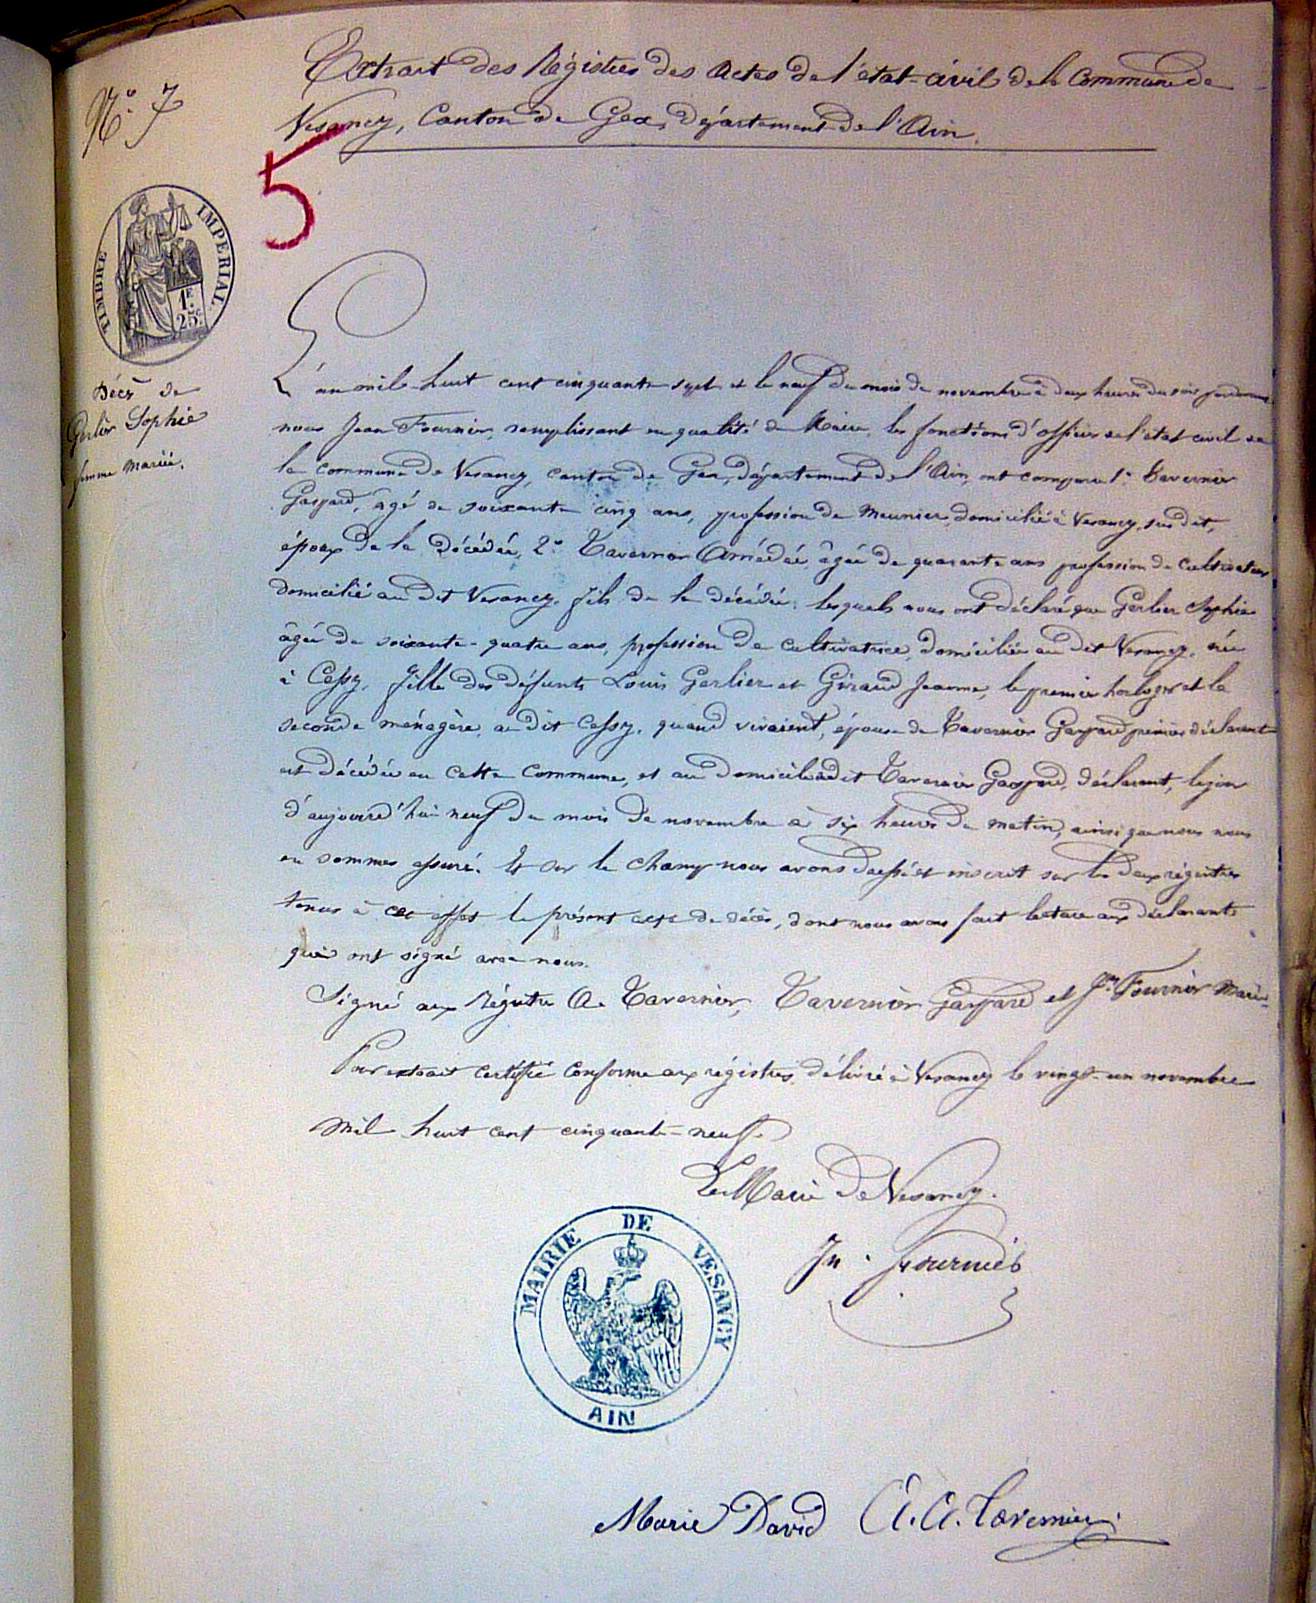 Extrait des Régistres des Actes de l'état-civil de la Commune de
Vesancy, Canton de Gex, département de l'Ain.
N.º 7
5
TIMBRE IMPERIAL
1F
25c
Décès de
Gerlier Sophie
femme mariée.
L'an mil-huit cent cinquante sept et le neuf du mois de novembre à deux heures du soir pardevant
nous Jean Fournier, remplissant en qualité de Maire, les fonctions d'officier de l'état civil de
la commune de Vesancy, canton de Gex, département de l'Ain, ont comparu 1.º Tavernier
Gaspard, âgé de soixante cinq ans, profession de Meunier domicilié à Vesancy, sus dit,
époux de la décédée, 2.º Tavernier Amédée, âgé de quarante ans profession de cultivateur
domicilié au dit Vesancy, fils de la décédée; lesquels nous ont déclaré que Gerlier Sophie
âgée de soixante-quatre ans, profession de cultivatrice, domiciliée au dit Vesancy, née
à Cessy, fille des défunts Louis Gerlier et Giraud Jeanne, le premier horloger et la
seconde ménagère, au dit Cessy, quand vivaient, épouse de Tavernier Gaspard premier déclarant
est décédée en cette commune, et au domicile du dit Tavernier Gaspard, déclarant, le jour
d'aujourd'hui neuf du mois de novembre à six heures du matin, ainsi que nous nous
en sommes assuré. Et sur le champ nous avons dressé et inscrit sur les deux régistres
tenus à cet effet le présent acte de décès, dont nous avons fait lecture aux déclarants
qui ont signé avec nous.
Signé aux Régistres A. Tavernier, Tavernier Gaspard et Jn Fournier Maire.
Pour extrait certifié conforme aux régistres, délivré à Vesancy le vingt-un novembre
mil huit cent cinquante-neuf.
Le Maire de Vesancy.
Jn. Fournier
MAIRIE DE VESANCY
AIN
Marie David A. A. Tavernier